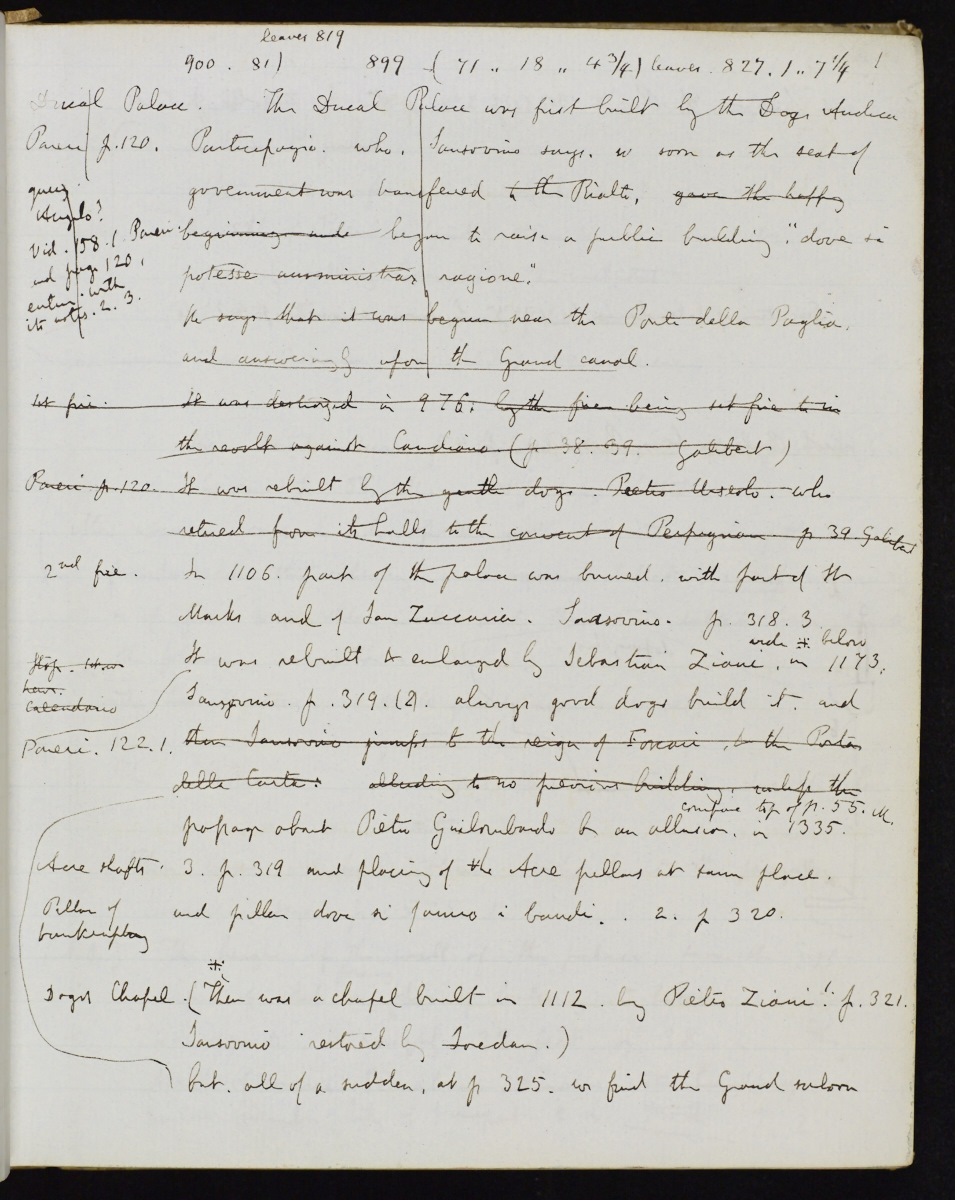 leaves 819
900 . 81) 899 (71 .. 18 .. 4 3/4) leaves. 827. 1 .. 7 1/4 !
Ducal Palace. The Ducal Palace was first built by the Doge
Pareri p.120. Participazio. who, Sansovino says. so soon as the seat of
query.
Angelo?
Vid. 158.1 Pareri.
and page 120,
entire. with
its notes. 2. 3.
government was transferred to the Rialto, gave the happy
beginning and began to raise a public building, "dove si
potesse amministrar ragione."
He says that it was begun near the Ponte della Paglia,
and answering upon the Grand canal.
1st fire. It was destroyed in 976: by the fire being set fire to in
the revolt against Candiano. (p 38. 39. Galibert)
Pareri p.120. It was rebuilt by the gentle doge. Pietro Urseolo. who
retired from its halls to the convent of Perpignan. p 39. Galibert
2nd fire. In 1106. part of the palace was burned. with part of St
Marks and of San Zaccaria. Sansovino. p. 318. 3
vide ⁜ below
It was rebuilt & enlarged by Sebastian Ziani, in 1173,
Stop.
Calendario
Sansovino. p. 319. (2). always good doges build it. and
Pareri. 122.1. then Sansovino jumps to the reign of Foscari, to the Porta
della Carta: alluding to no previous building, unless the
compare top of p. 55. M.
passage about Pietro be an allusion. in 1335.
Acre shafts. 3. p. 319 and placing of the Acre pillars at same place.
Pillar of
bankruptcy
and pillar dove si i bandi. . 2. p 320.
⁜
Doges Chapel. (There was a chapel built in 1112. by Pietro Ziani! p. 321.
Sansovino restored by Loredan.)
but. all of a sudden, at p 325. we find the Grand saloon